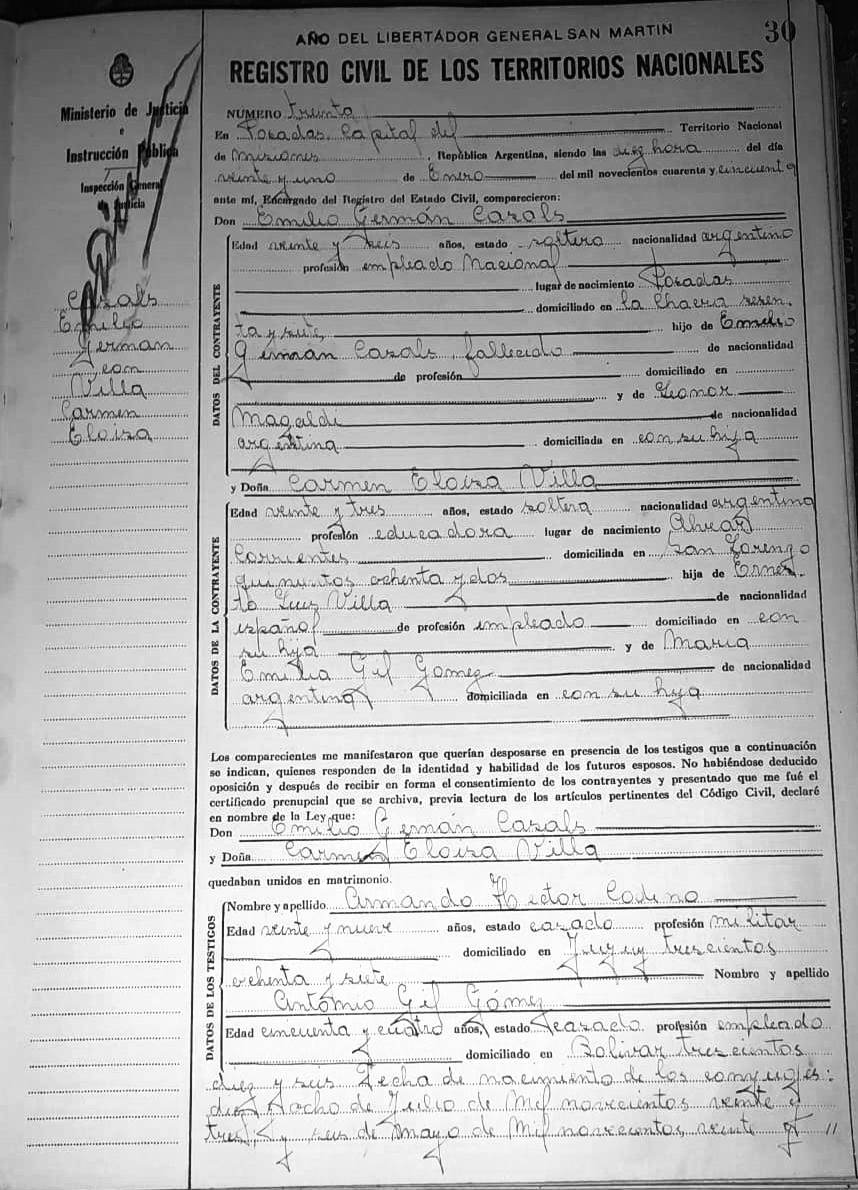 30
AÑO DEL LIBERTADOR GENERAL SAN MARTIN
REGISTRO CIVIL DE LOS TERRITORIOS NACIONALES
Ministerio de Justicia
e
Instrucción Pública
Inspección General
de Justicia
Casals
Emilio
German
con
Villa
Carmen
Eloisa
NUMERO treinta
En Posadas, Capital del Territorio Nacional
de Misiones, República Argentina, siendo las diez hora del día
veinte y uno de Enero del mil novecientos cuarenta y, cincuenta
ante mí, Encargado del Registro del Estado Civil, comparecieron:
Don Emilio Germán Casals
DATOS DEL CONTRAYENTE
Edad veinte y seis años, estado soltero nacionalidad argentino
profesión empleado Nacional
lugar de nacimiento Posadas
domiciliado en la Chacra sesen-
ta y siete hijo de Emilio
Germán Casals, fallecido de nacionalidad
de profesión domiciliado en
y de Leonor
Magaldi de nacionalidad
argentina domiciliada en con su hija
y Doña Carmen Eloisa Villa
DATOS DE LA CONTRAYENTE
Edad veinte y tres años, estado soltera nacionalidad argentina
profesión educadora lugar de nacimiento Alvear
Corrientes domiciliada en San Lorenzo
quinientos ochenta y dos hija de Ernes-
to Luis Villa de nacionalidad
español de profesión empleado domiciliado en con
su hija y de Maria
Emilia Gil Gomez de nacionalidad
argentina domiciliada en con su hija
Los comparecientes me manifestaron que querían desposarse en presencia de los testigos que a continuación
se indican, quienes responden de la identidad y habilidad de los futuros esposos. No habiéndose deducido
oposición y después de recibir en forma el consentimiento de los contrayentes y presentado que me fué el
certificado prenupcial que se archiva, previa lectura de los artículos pertinentes del Código Civil, declaré
en nombre de la Ley que:
Don Emilio Germán Casals
y Doña Carmen Eloisa Villa
quedaban unidos en matrimonio.
DATOS DE LOS TESTIGOS
Nombre y apellido Armando Hector Codino
Edad veinte y nueve años, estado casado profesión militar
domiciliado en Jujuy trescientos
ochenta y siete Nombre y apellido
Antonio Gil Gómez
Edad cincuenta y cuatro años, estado casado profesión empleado
domiciliado en Bolivar trescientos
diez y seis Fecha de nacimiento de los conyuges:
diez y ocho de Julio de Mil novecientos veinte y
tres, y seis de Mayo de Mil novecientos veinte y //